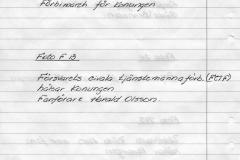 Förbimarch för Konungen
Foto F 13
Försvarets civila tjänstemannaförb. (FCTF)
hälsar Konungen
Fanförare Harald Olsson.